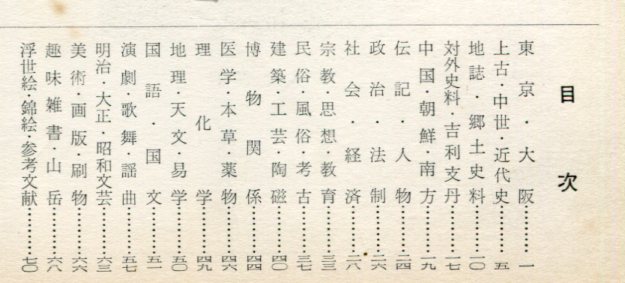 目次
東京・大阪………一
上古・中世・近代史………五
地誌・郷土史料………一〇
対外史料・吉利支丹………一七
中国・朝鮮・南方………一九
伝記・人物………二四
政治・法制………二六
社会・経済………二八
宗教・思想・教育………三三
民俗・風俗・考古………三七
建築・工芸・陶磁………四〇
博物関係………四四
医学・本草・薬物………四六
理化学………四九
地理・天文・易学………五〇
国語・国文………五一
演劇・歌舞・謡曲………五七
明治・大正・昭和文芸………六三
美術・画版・刷物………六六
趣味雑書・山岳………六八
浮世絵・錦絵・参考文献………七〇